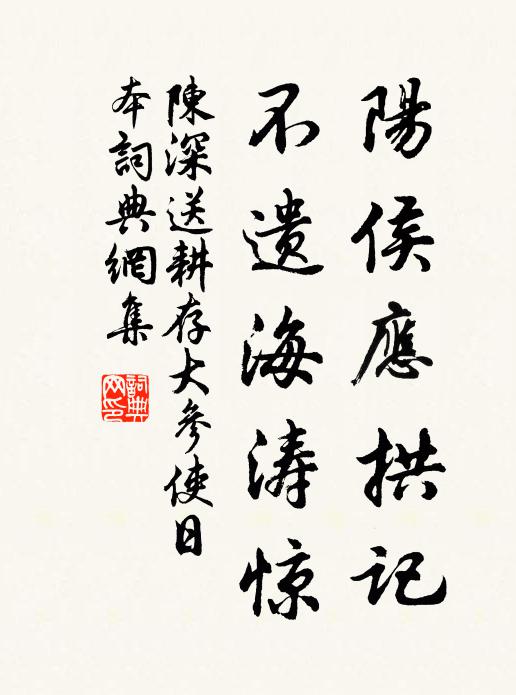 陽侯應拱记
不遺海涛惊
陳深送耕存大參使日
本詞典網集
詞典
网印